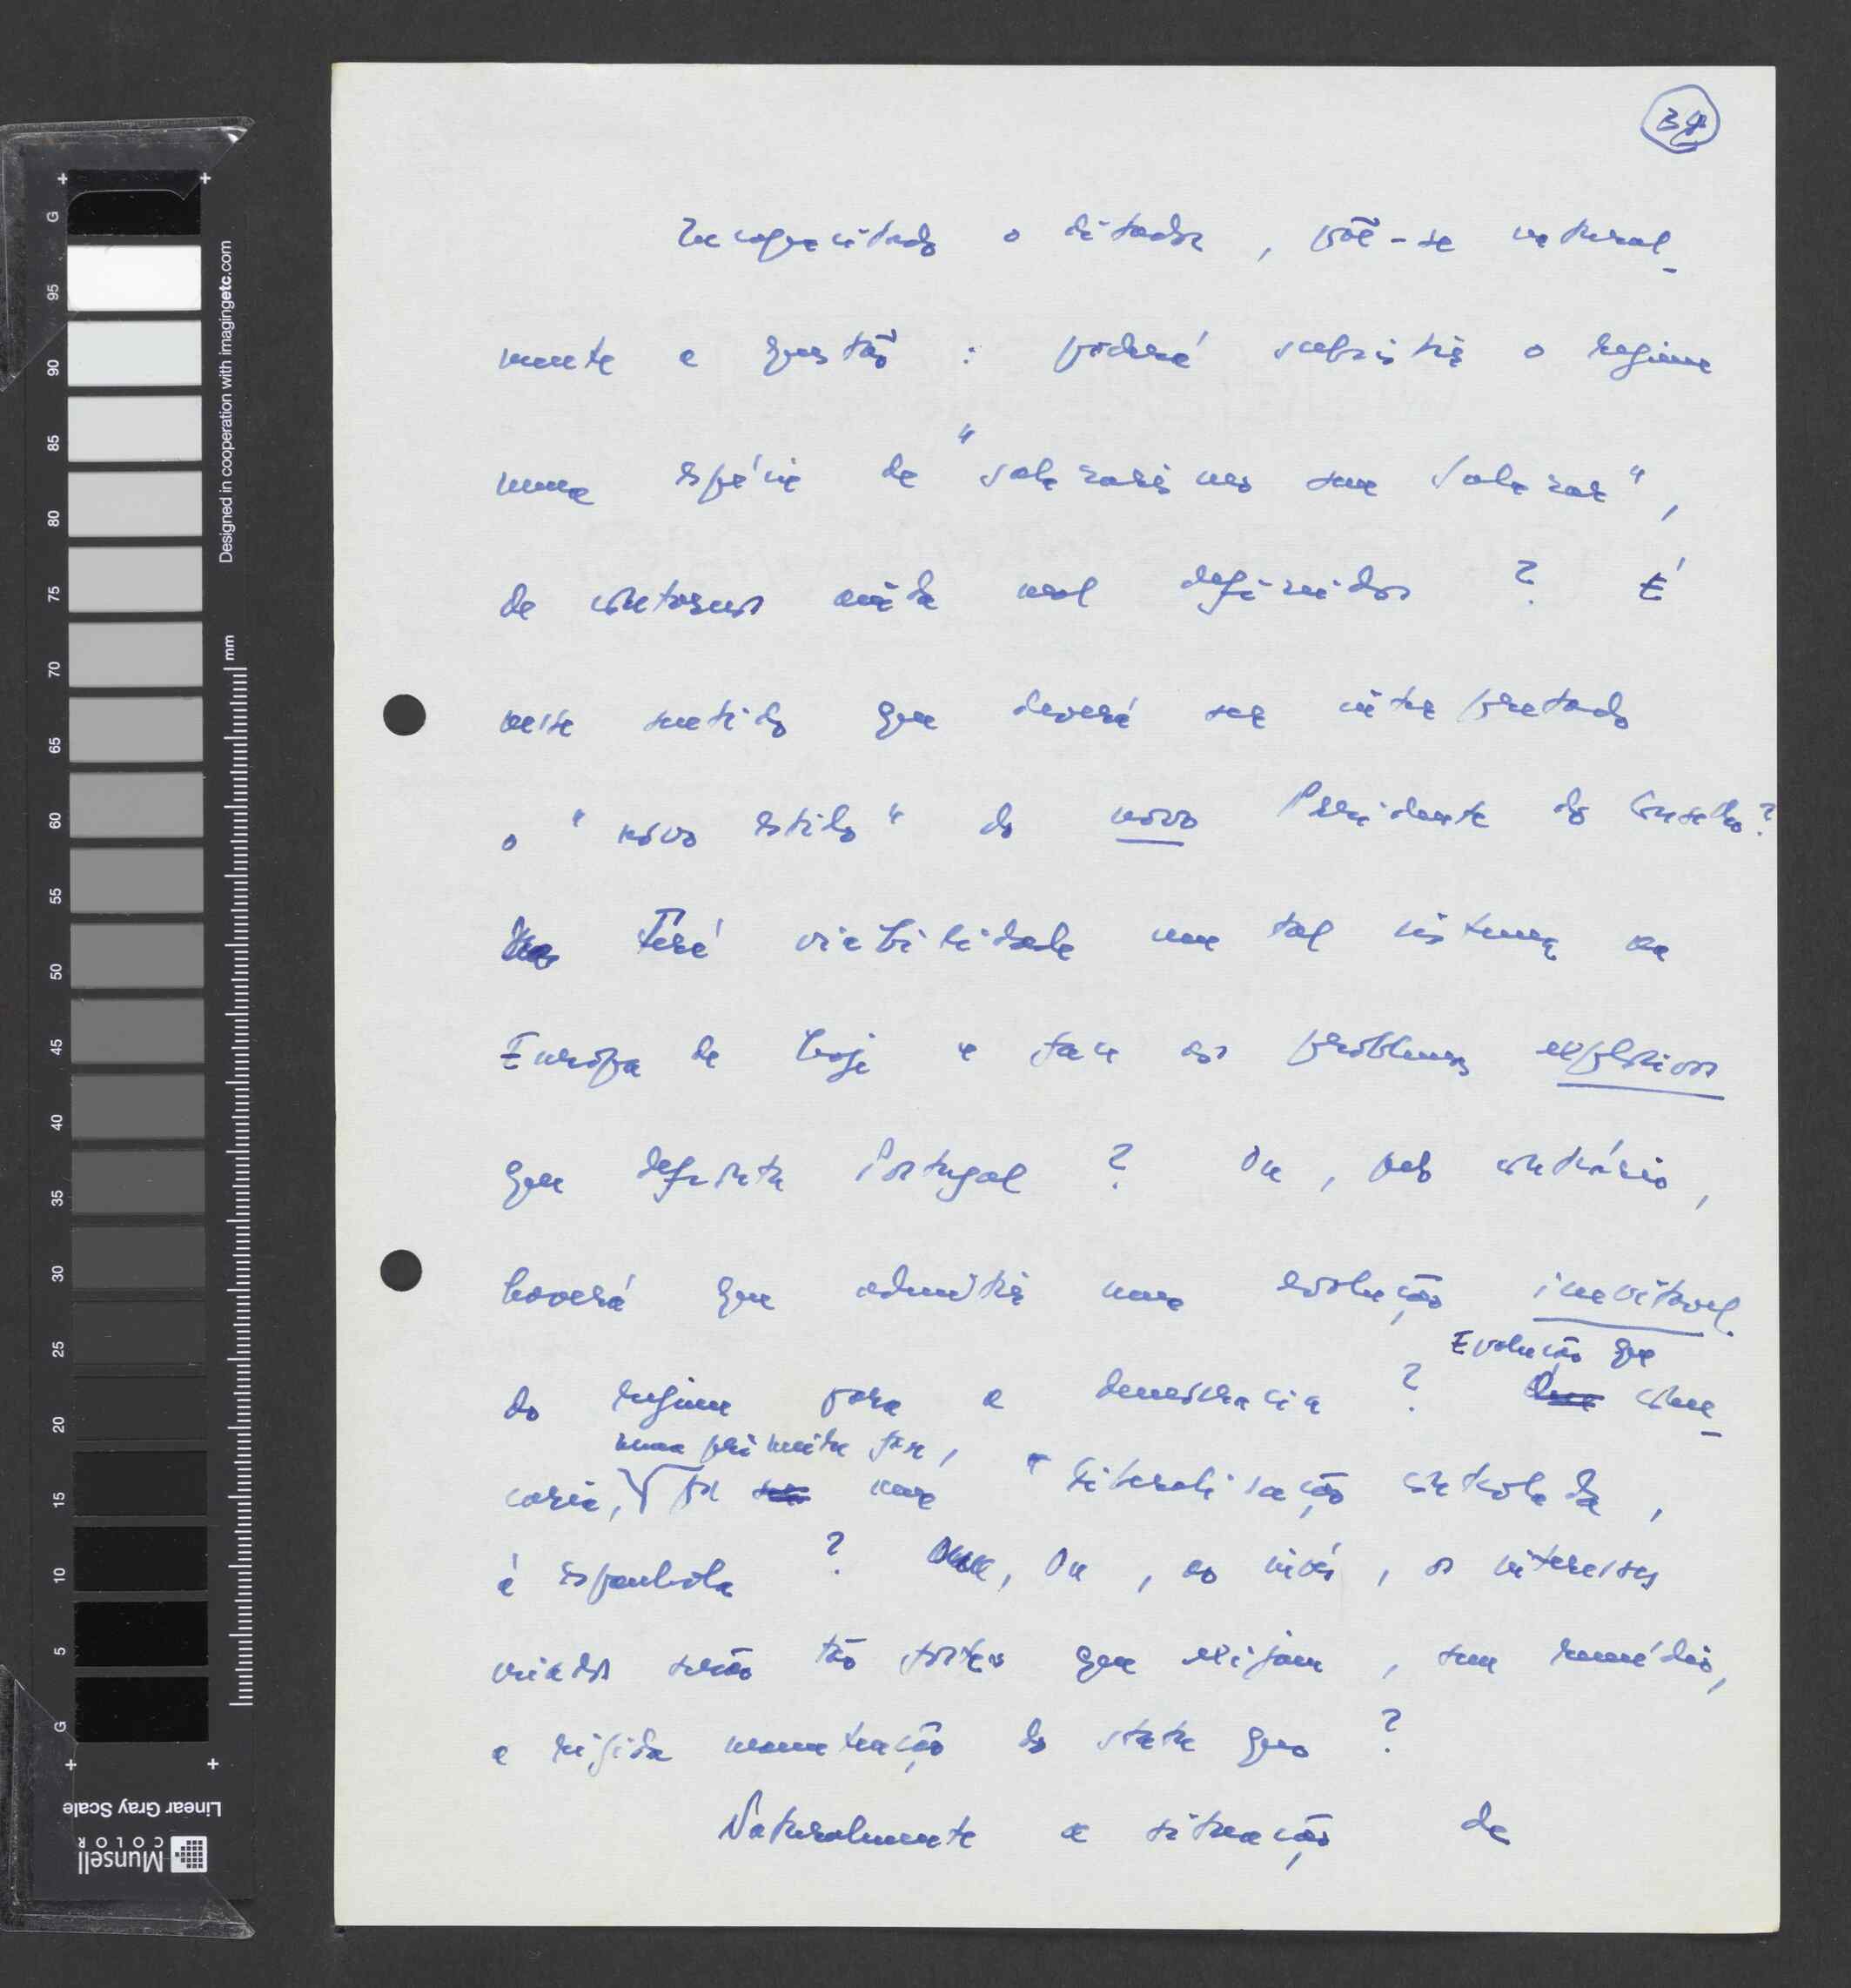 38
Incapacitado o ditador, põe-se natural-
mente a questão: poderá subsistir o regime
numa espécie de "salazarismo sem Salazar",
de contornos ainda mal definidos? É
nesse sentido que deverá ser interpretado
o "novo estilo" do novo Presidente do Conselho?
Terá viabilidade um tal sistema na
Europa de hoje e face aos problemas explosivos
que defronta Portugal? Ou, pelo contrário,
haverá que admitir uma evolução inevitável
do regime para a democracia? Evolução que come-
çaria, numa primeira fase, por uma "liberalisação controlada,
à espanhola? Ou, ao invés, os interesses
criados serão tão fortes que exijam, sem remédio,
a rígida manutenção do statu quo?
Naturalmente a situação de
G 95 90 85 80 75 70 65 60 55 50 45 40 35 30 25 20 15 10 5 G
Designed in cooperation with imagingetc.com
mm
Linear Gray Scale
Munsell
COLOR